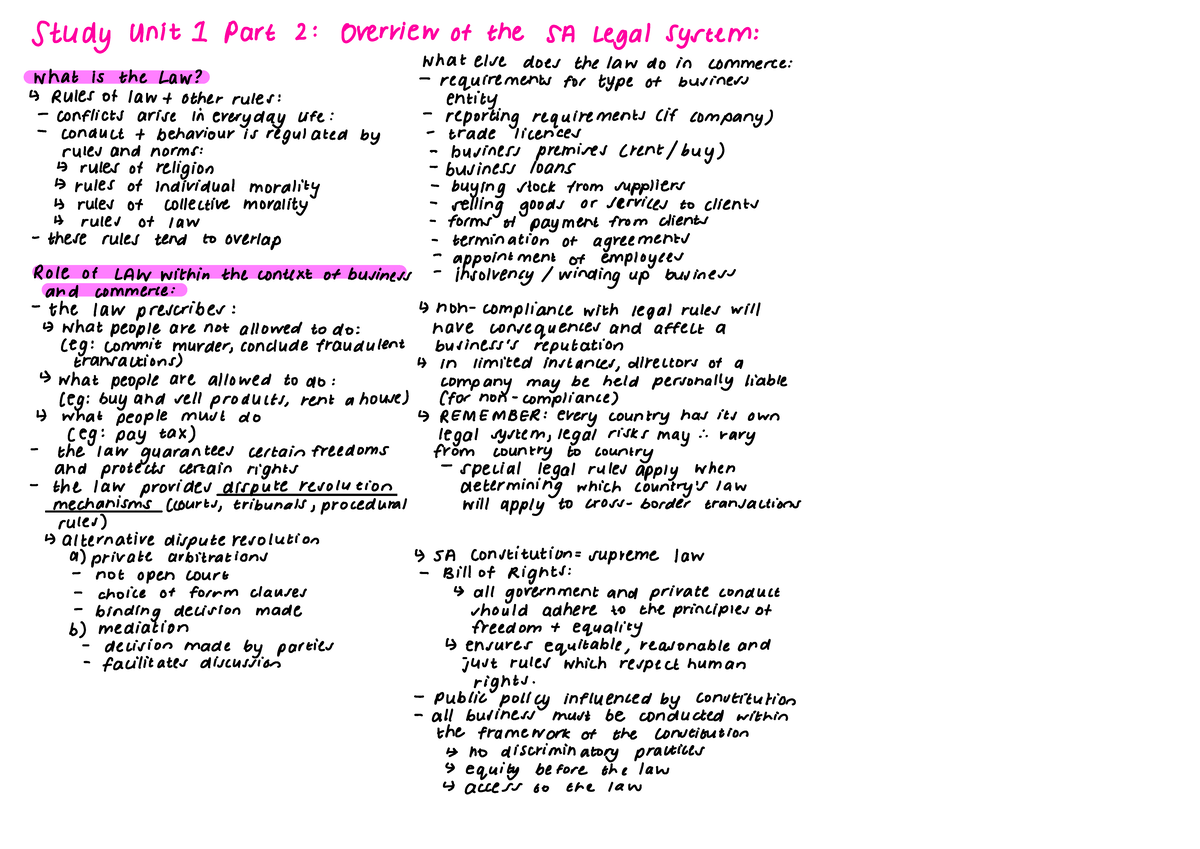 Study Unit 1 Part 2: Overview of the SA Legal System:
What is the Law?
↳ Rules of law + other rules:
- conflicts arise in everyday life:
- conduct + behaviour is regulated by
rules and norms:
↳ rules of religion
↳ rules of individual morality
↳ rules of collective morality
↳ rules of law
- these rules tend to overlap
Role of LAW within the context of business
and commerce:
- the law prescribes:
↳ what people are not allowed to do:
(eg: commit murder, conclude fraudulent
transactions)
↳ what people are allowed to do:
(eg: buy and sell products, rent a house)
↳ what people must do
(eg: pay tax)
- the law guarantees certain freedoms
and protects certain rights
- the law provides dispute resolution
mechanisms (courts, tribunals, procedural
rules)
↳ alternative dispute resolution
a) private arbitrations
- not open court
- choice of forum clauses
- binding decision made
b) mediation
- decision made by parties
- facilitates discussion
What else does the law do in commerce:
- requirements for type of business
entity
- reporting requirements (if company)
- trade licences
- business premises (rent/buy)
- business loans
- buying stock from suppliers
- selling goods or services to clients
- forms of payment from clients
- termination of agreements
- appointment of employees
- insolvency / winding up business
↳ non-compliance with legal rules will
have consequences and affect a
business's reputation
↳ in limited instances, directors of a
company may be held personally liable
(for non-compliance)
↳ REMEMBER: every country has its own
legal system, legal risks may ∴ vary
from country to country
- special legal rules apply when
determining which country's law
will apply to cross-border transactions
↳ SA Constitution = supreme law
- Bill of Rights:
↳ all government and private conduct
should adhere to the principles of
freedom + equality
↳ ensures equitable, reasonable and
just rules which respect human
rights.
- Public policy influenced by constitution
- all business must be conducted within
the framework of the constitution
↳ no discriminatory practices
↳ equity before the law
↳ access to the law